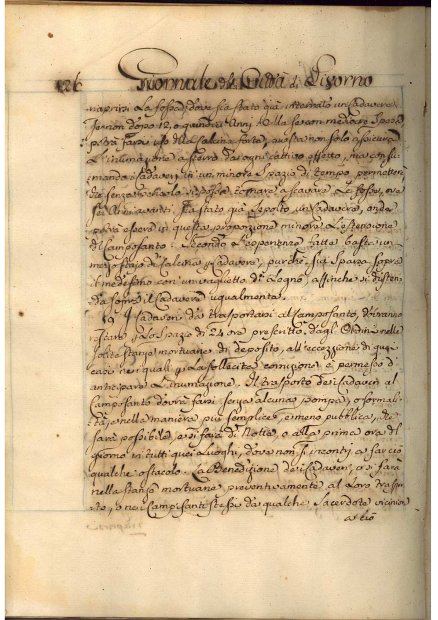 126 Giornale della Città di Livorno
riaprirsi la fossa, dove sia stato già interrato un Cadavere
se non dopo 12, o quindici Anni. Nella sezion medesima
potrà farsi uso della calcina forte, questa non solo assicura
L'inumazione a sterro da ogni cattivo effetto, ma consu-
mando i Cadaveri in un minore Spazio di tempo, permetter-
di senza ritornare a scavare Le fosse, ove
sia stato già deposto un Cadavere, onde
potrà essere in questa proporzione minore L'estensione
del Camposanto. Secondo L'esperienze fatte basta un
mezzo stajo di Calcina per Cadavere, purchè si Sparga sopra
il medesimo con un vaglietto di Legno, affinche si disten-
da sopra il Cadavere ugualmente.
I Cadaveri da trasportarsi al Camposanto, dovranno
restare per Lo Spazio di 24 ore prescritto dagl'Ordini nelle
solite stanze mortuarie di deposito, all'eccezione di quei
casi nei quali per la sollecita è permesso d'
anticipare L'inumazione. Il trasporto dei Cadaveri al
Camposanto dovrà farsi senza alcuna pompa, o formali-
tà, e nella maniera più semplice, e meno pubblica, che
sarà possibile, e si farà di Notte, o alla prima ora del
giorno in tutti quei Luoghi, dove non s'incontri, a far ciò
qualche ostacolo. La Benedizione dei Cadaveri, o si farà
nella stanza mortuaria preventivamente al Loro traspor-
to, o nei Campisanti stessi da qualche Sacerdote vicinior
a ciò